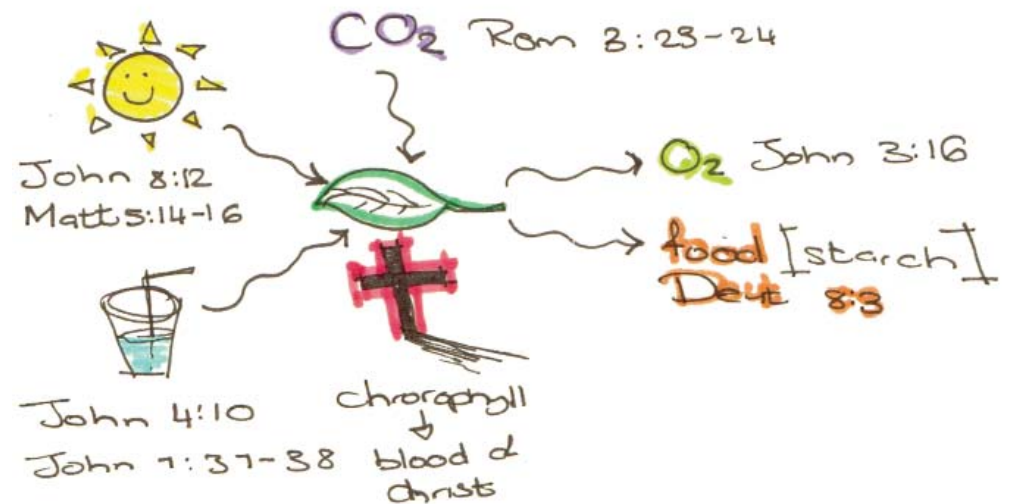 CO2 Rom 3:23-24
John 8:12
Matt 5:14-16
O2 John 3:16
food [starch]
Deut 8:3
John 4:10
John 7:37-38
chrorophyll
blood of
christ